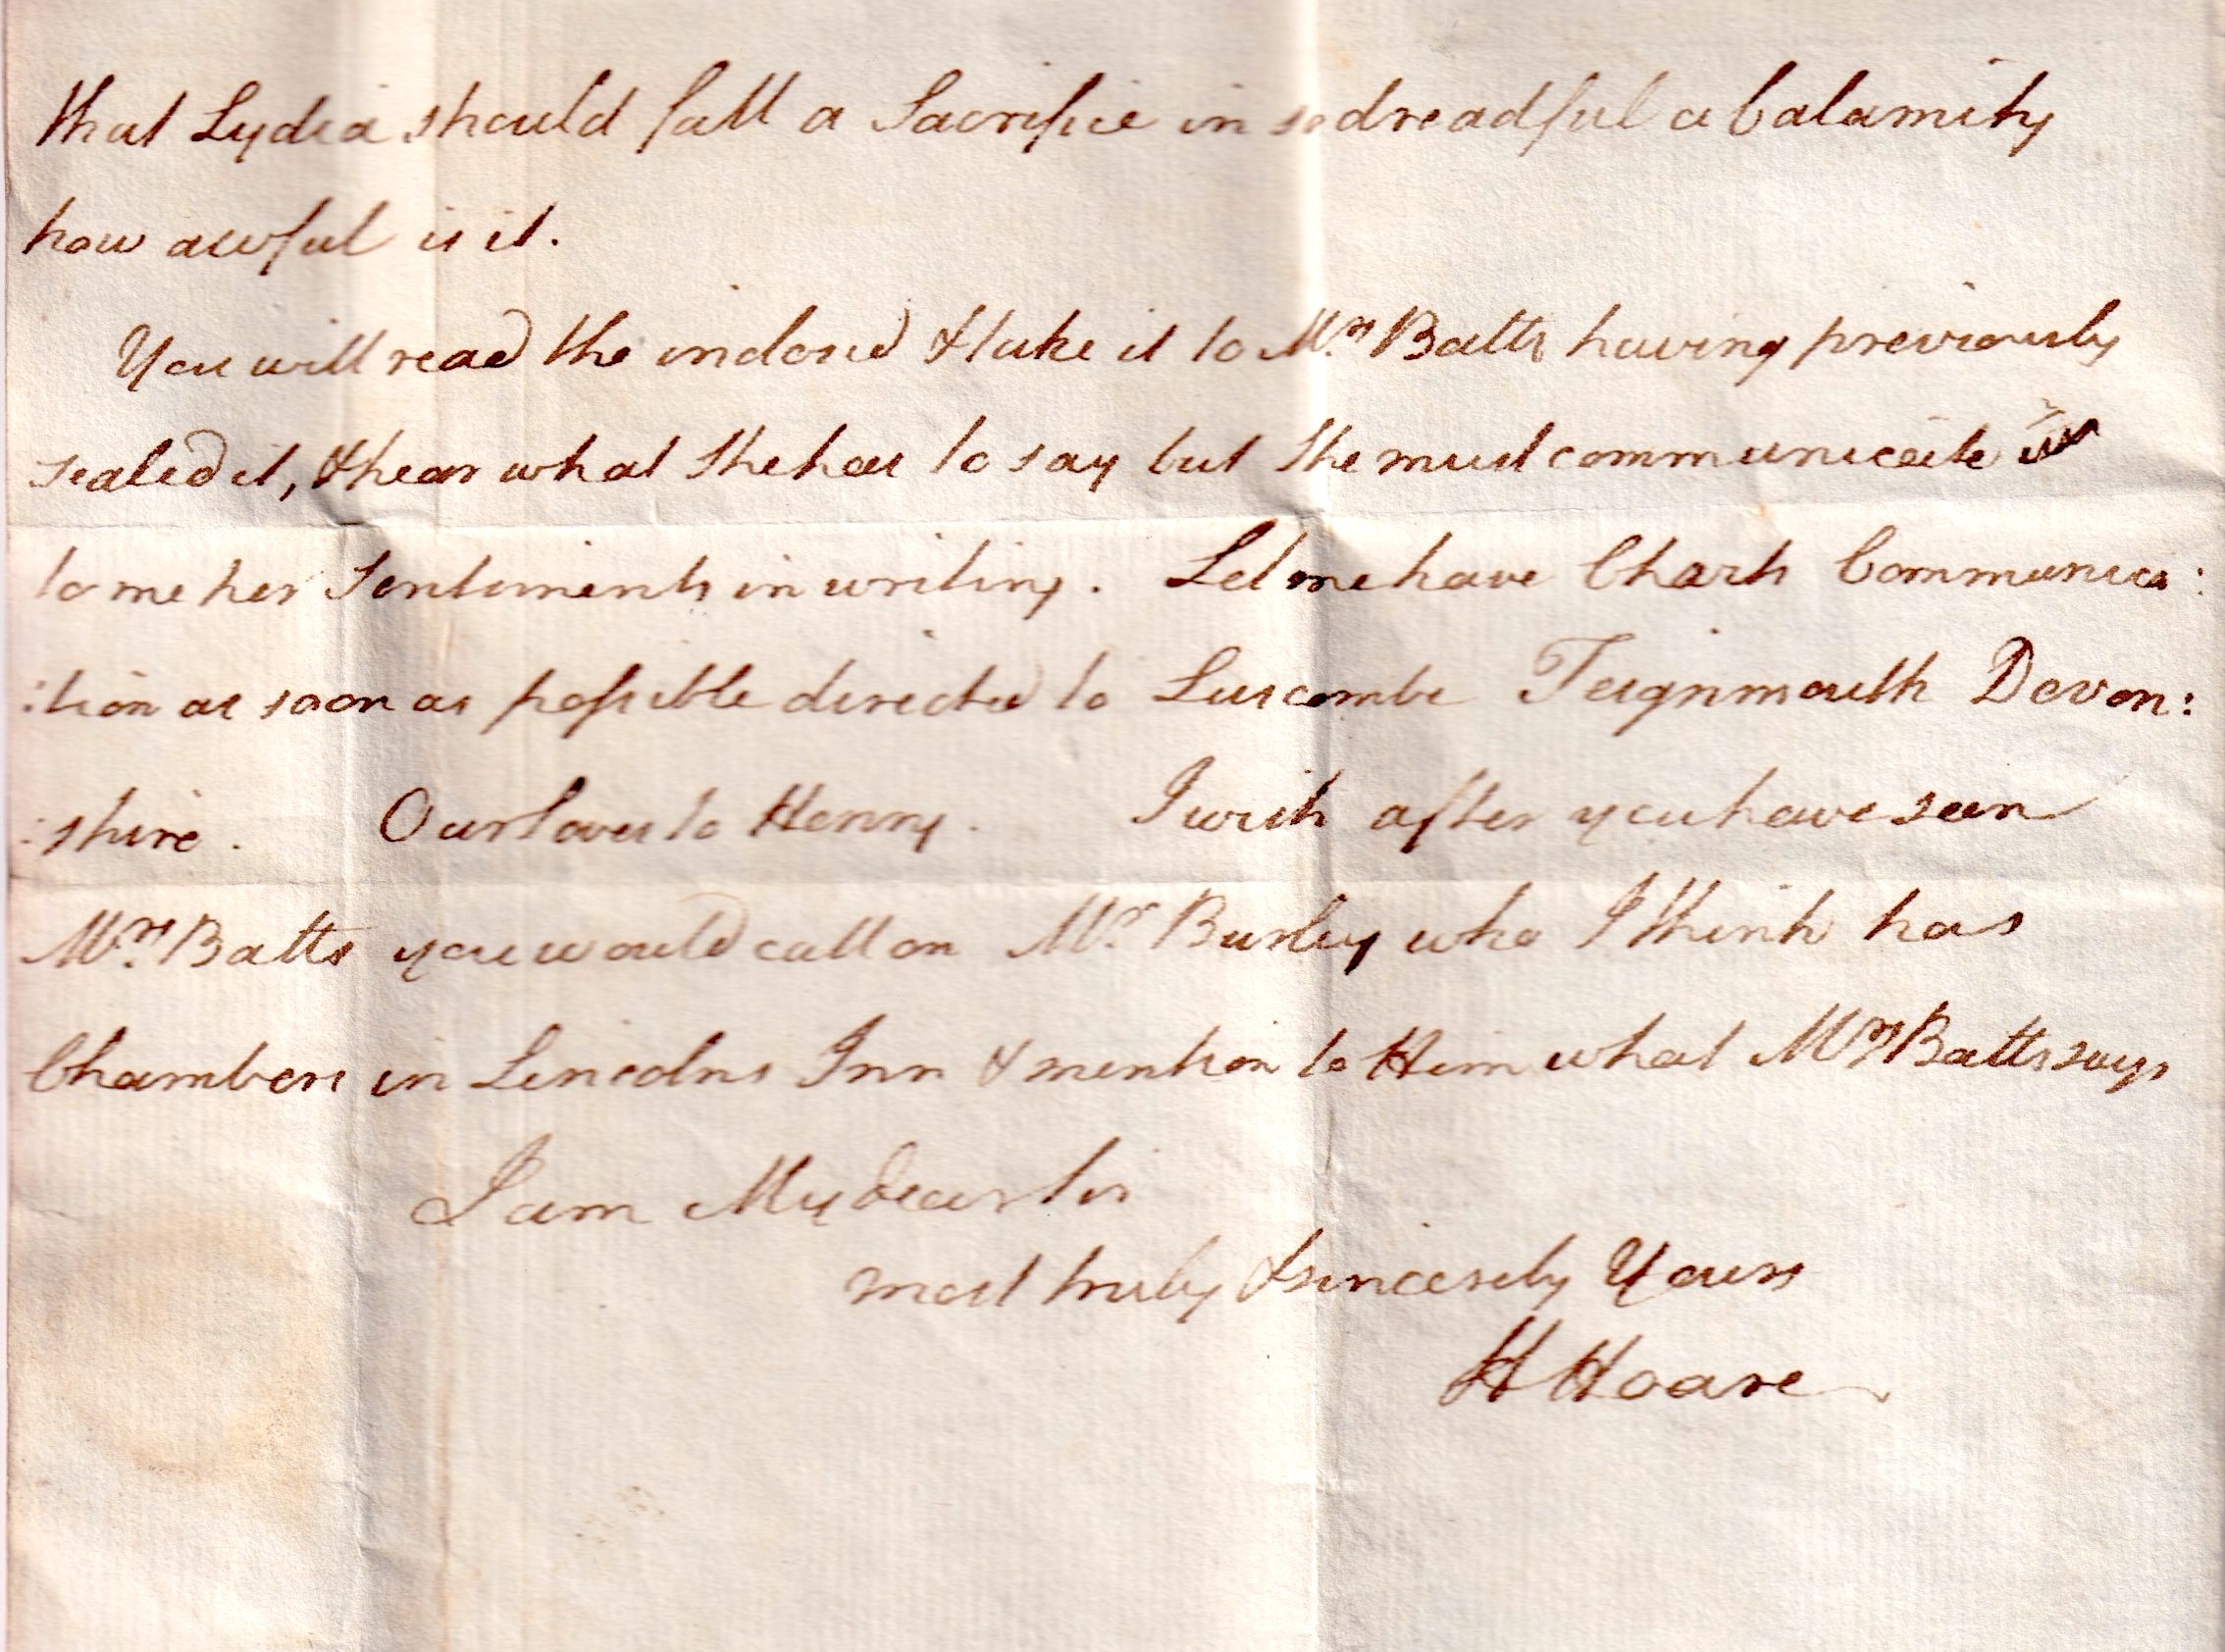 that Lydia should fall a Sacrifice in so dreadful a Calamity
how awful is it.
You will read the inclosed & take it to Mrs Batts having previously
sealed it, & hear what She has to say but She must communicate
to me her Sentiments in writing. Let me have Communica:
:tion as soon as possible directed to Luscombe Teignmouth Devon:
:shire. Our loves to Henry. I wish after you have seen
Mrs Batts you would call on Mr Burley who I think has
Chambers in Lincolns Inn & mention to Him what Mrs Batts says
I am My dear Sir
most truly & sincerely Yours
H Hoare